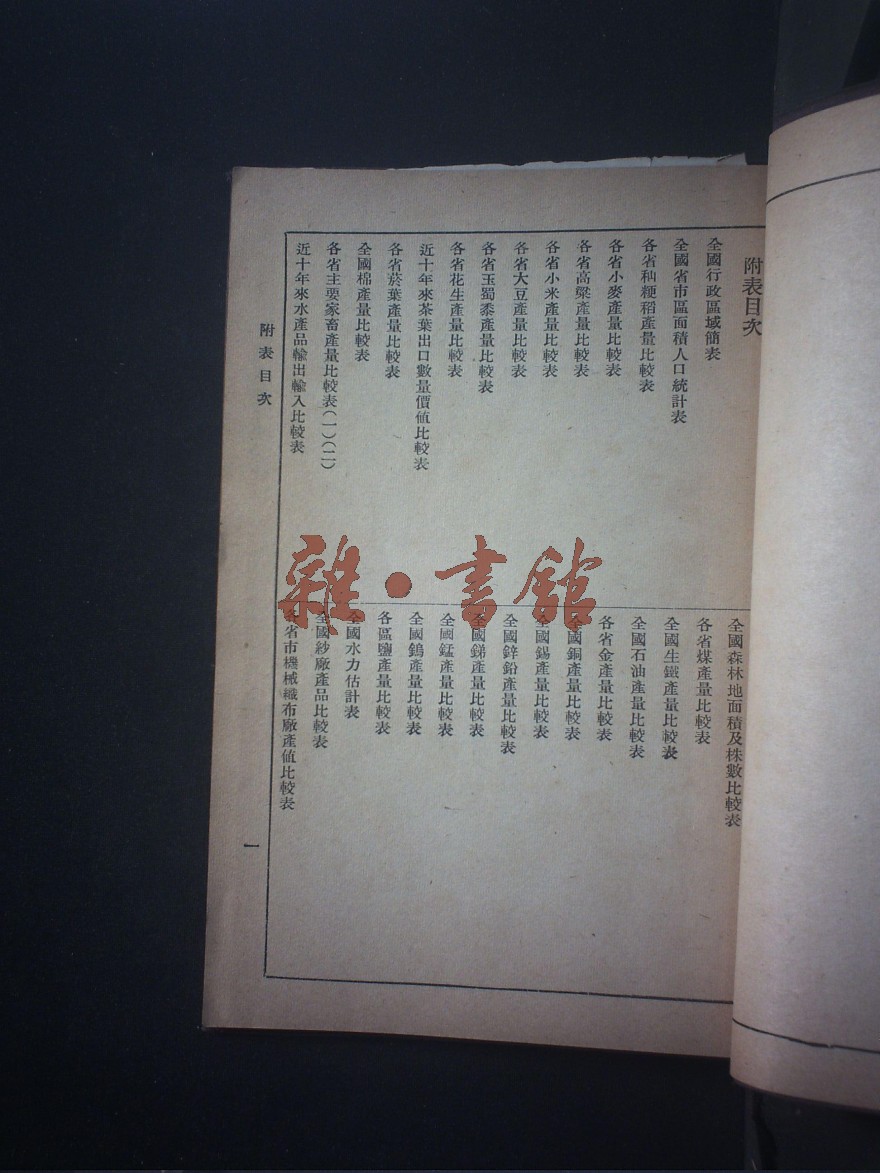 附表目次
全國行政區域簡表
全國省市區面積人口統計表
各省秈粳稻產量比較表
各省小麥產量比較表
各省高粱產量比較表
各省小米產量比較表
各省大豆產量比較表
各省玉蜀黍產量比較表
各省花生產量比較表
近十年來茶葉出口數量價値比較表
各省菸葉產量比較表
全國棉產量比較表
各省主要家畜產量比較表(一)(二)
近十年來水產品輸出輸入比較表
全國森林地面積及株數比較表
各省煤產量比較表
全國生鐵產量比較表
全國石油產量比較表
各省金產量比較表
全國銅產量比較表
全國錫產量比較表
全國鋅鉛產量比較表
全國銻產量比較表
全國錳產量比較表
全國鎢產量比較表
各區鹽產量比較表
全國水力估計表
全國紗廠產品比較表
各省市機械織布廠產値比較表
附表目次
一
雜·書館